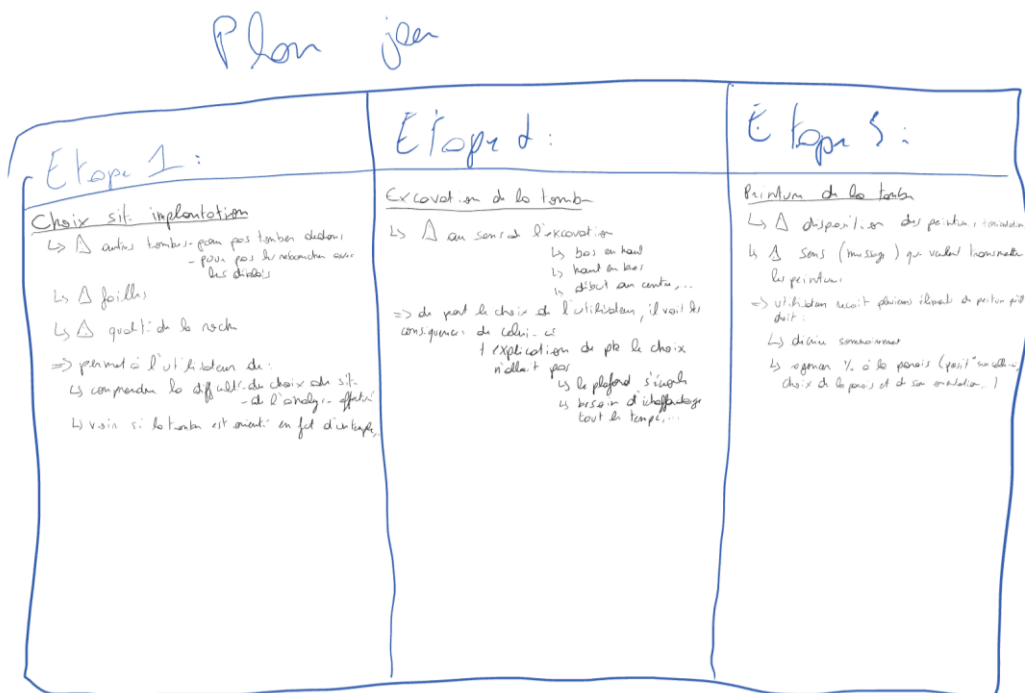 Plan jeu
Etape 1 :
Choix sit. implantation
↳ Δ autres tombes - pour pas tomber dedans
- pour pas les reboucher avec
les déblais
↳ Δ failles
↳ Δ qualité de la roche
=> permet à l'utilisateur de :
↳ comprendre la difficulté du choix du site
- de l'analyse effectué
↳ voir si la tombe est orienté en fct d'un temple,..
Etape 2 :
Excavation de la tombe
↳ Δ au sens de l'excavation
↳ bas en haut
↳ haut en bas
↳ début au centre,...
=> de part le choix de l'utilisateur, il voit les
conséquences de celui-ci
+ explication de pk le choix
n'allait pas
↳ le plafond s'écroule
↳ besoin d'échaffaudage
tout le temps,...
Etape 3 :
Peinture de la tombe
↳ Δ disposition des peintures,
↳ Δ sens (message) que veulent transmettre
les peintures
=> utilisateur reçoit plusieurs éléments de peinture qu'il
doit :
↳ décrire sommairement
↳ % à la parois (posit°
choix de la parois et de son orientation,.)